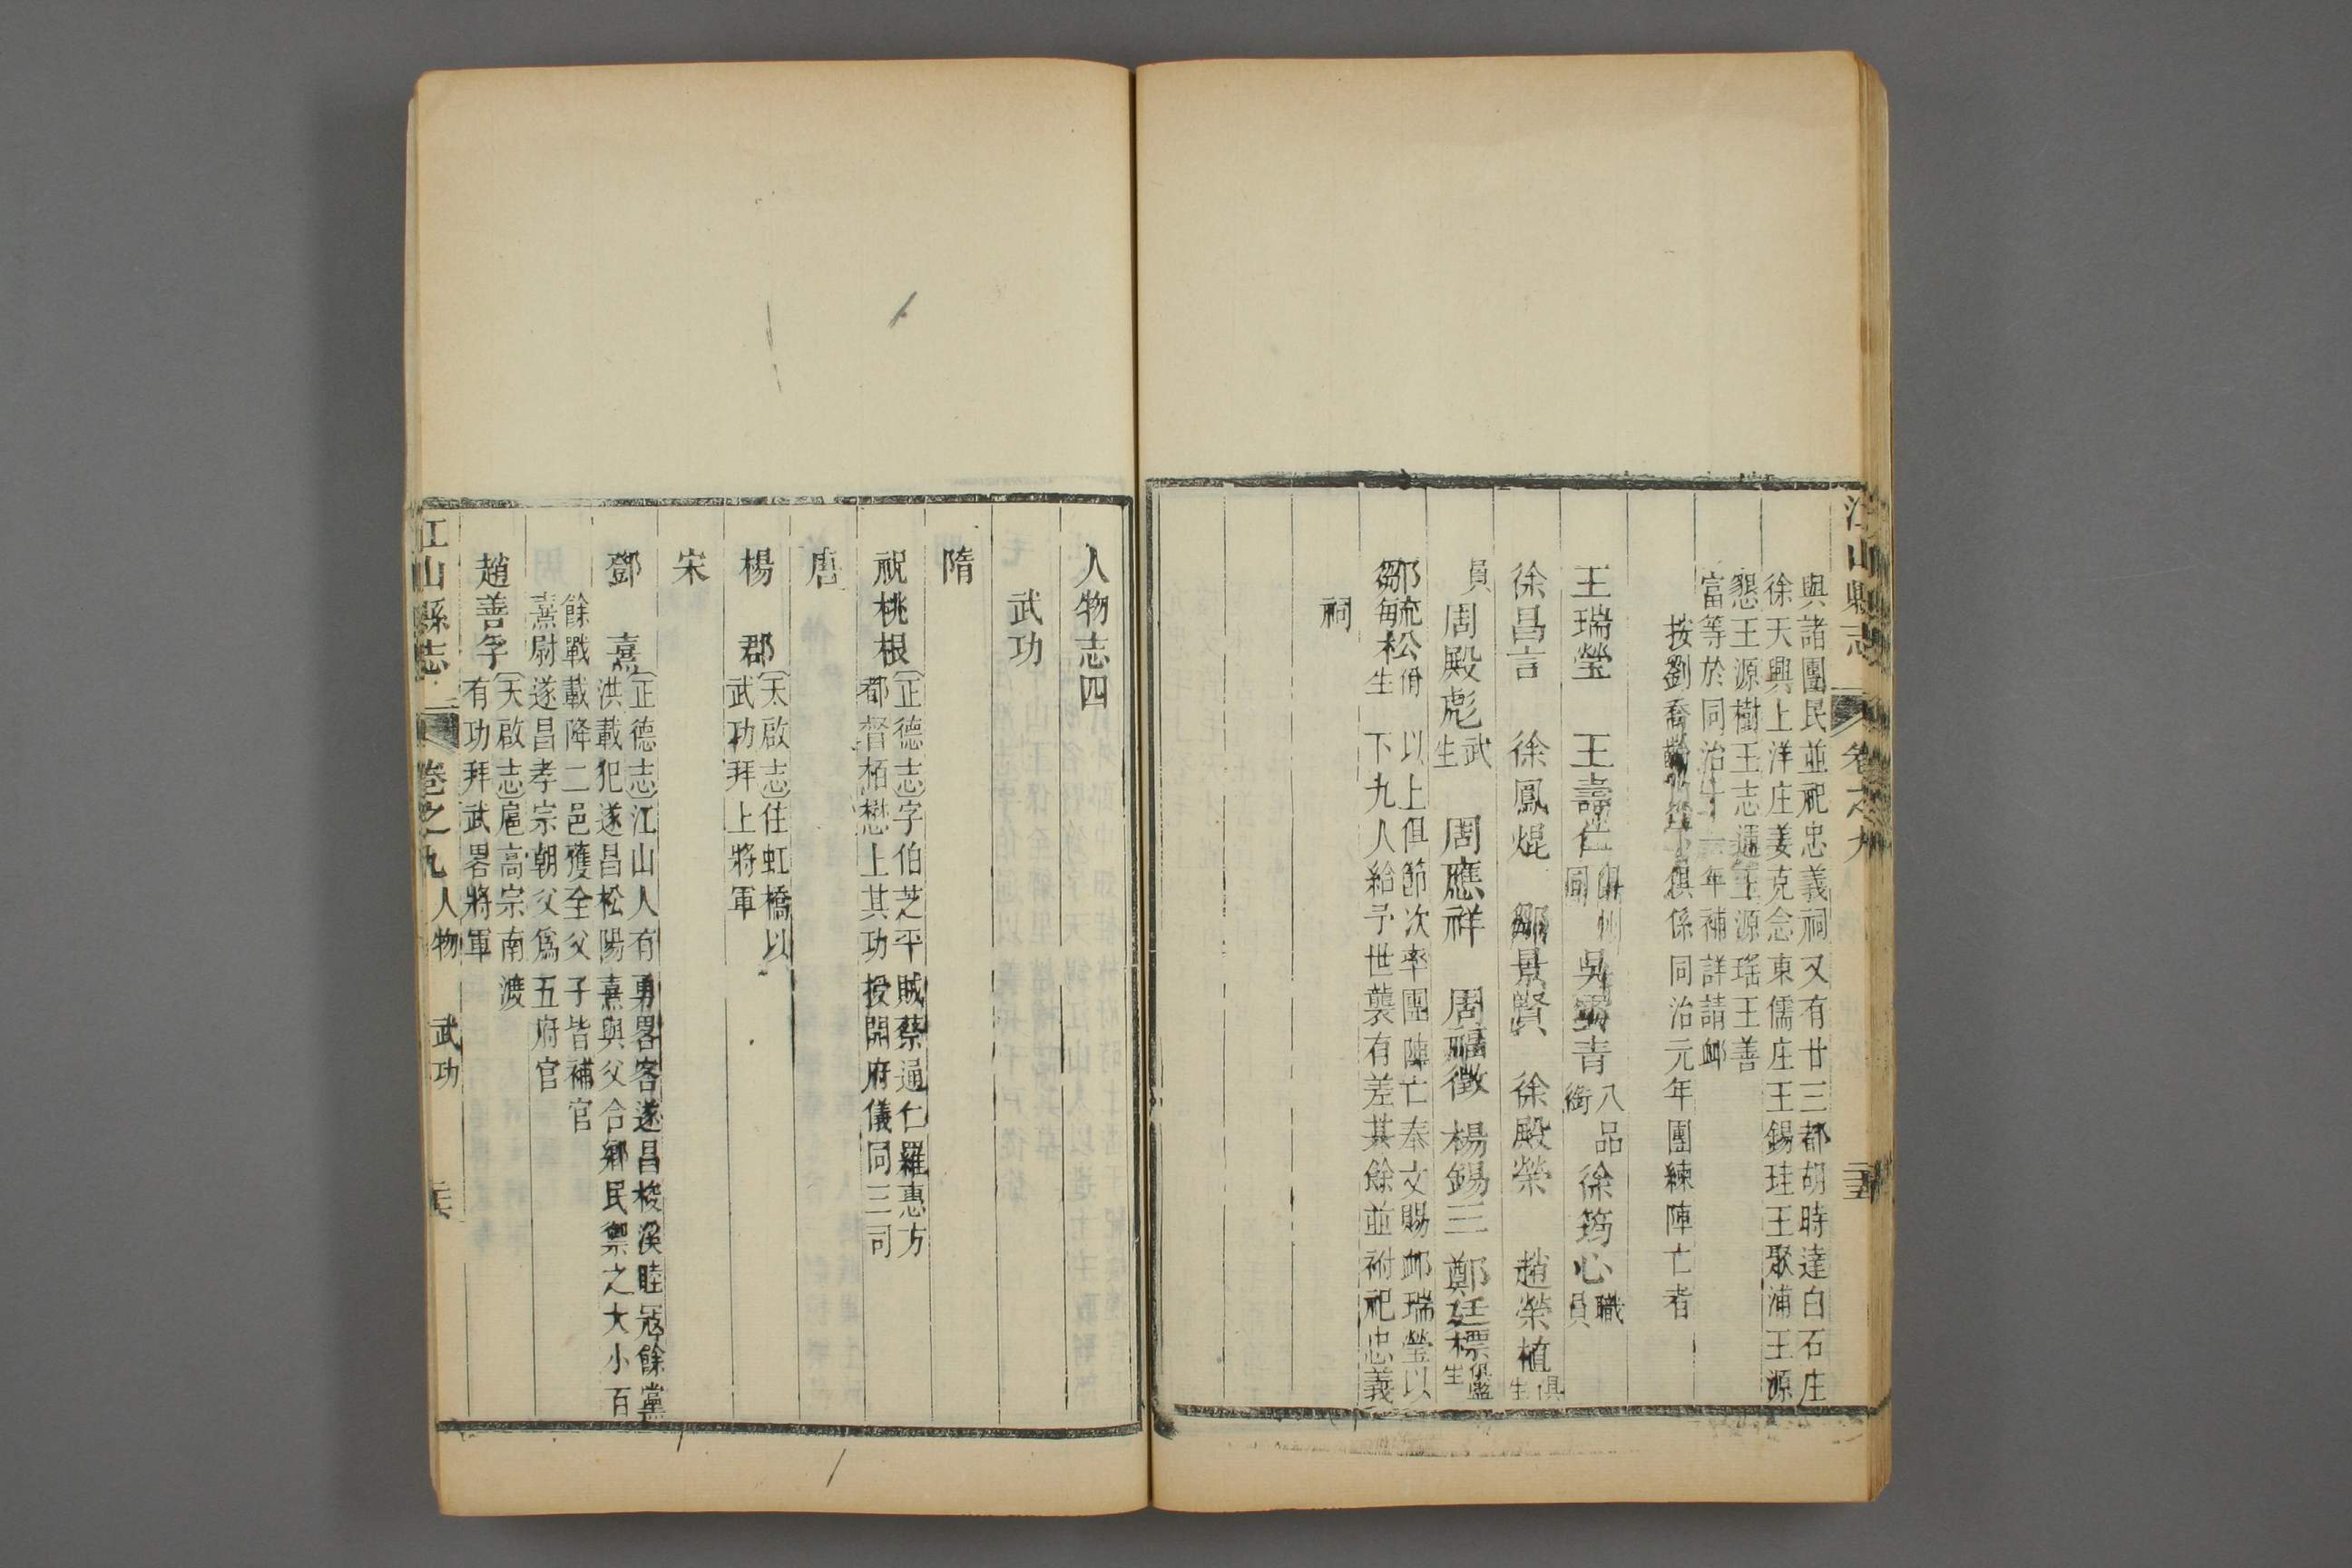 江山縣志 卷之九
與諸團民並祀忠義祠又有廿三都胡時達白石庄
徐天興上洋庄姜克念東儒庄王錫珪王聚浦王源
懇王源樹王志通王源瑤王善
富等於同治十一年補詳請䘏
按劉喬齡等俱係同治元年團練陣亡者
王瑞瑩 王壽仁 俱州同 吳青 八品銜 徐筠心 職員
徐昌言 徐鳳焜 鄒景賢 徐殿榮 趙榮植 俱生
員 周殿彪 武生 周應祥 周福徵 楊錫三 鄭廷標 俱監生
鄒毓松 俏生 以上俱節次率團陣亡奉文賜䘏瑞瑩以
下九人給予世襲有差其餘並祔祀忠義
祠
人物志四
武功
隋
祝桃根 正德志字伯芝平賊蔡通仁羅惠方
都督栢懋上其功授開府儀同三司
唐
楊 郡 天啟志住虹橋以
武功拜上將軍
宋
鄧 熹 正德志江山人有勇畧客遂昌梭溪睦寇餘黨
洪載犯遂昌松陽熹與父合鄉民禦之大小百
餘戰載降二邑獲全父子皆補官
熹尉遂昌孝宗朝父爲五府官
趙善孚 天啟志扈高宗南渡
有功拜武畧將軍
江山縣志 卷之九 人物 武功